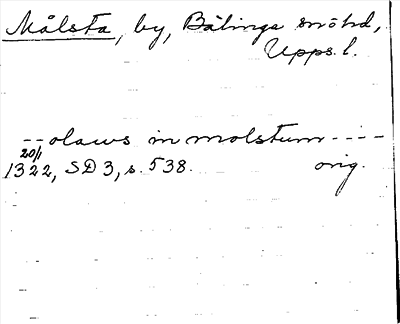 Målsta, by, Bälinge snöhd,
Upps. l.
-- olaws in molstum ----
20/1
1322, SD 3, s. 538. orig.